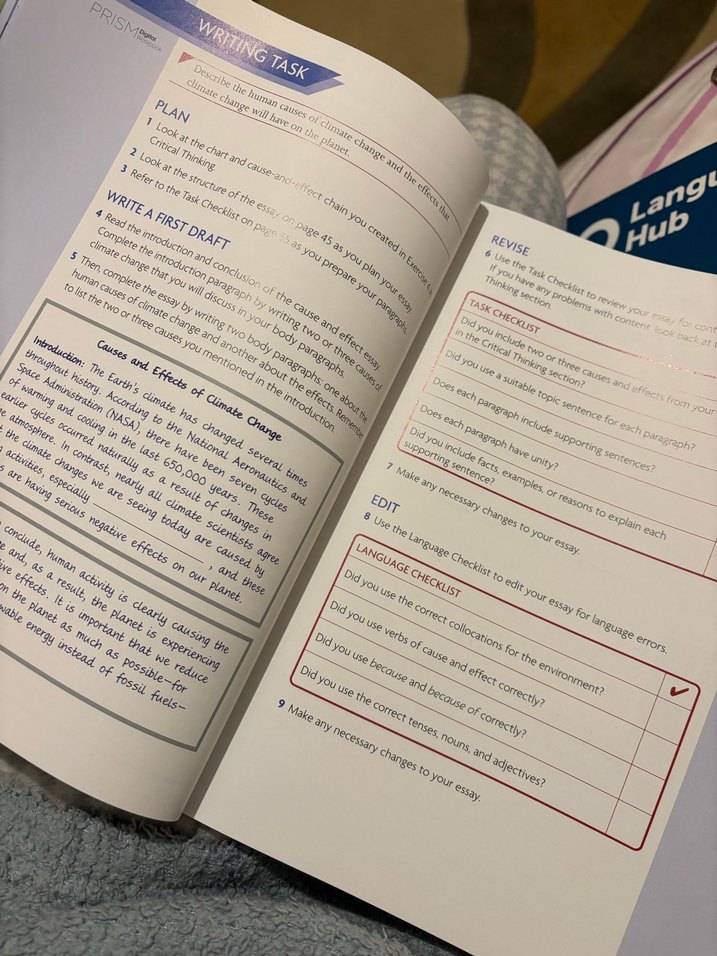 PRISM Digital
WORKBOOK
WRITING TASK
Describe the human causes of climate change and the effects that
climate change will have on the planet.
PLAN
1 Look at the chart and cause-and-effect chain you created in Exercise 4 in
Critical Thinking.
2 Look at the structure of the essay on page 45 as you plan your essay.
3 Refer to the Task Checklist on page 55 as you prepare your paragraphs.
WRITE A FIRST DRAFT
4 Read the introduction and conclusion of the cause and effect essay.
Complete the introduction paragraph by writing two or three causes of
climate change that you will discuss in your body paragraphs.
5 Then, complete the essay by writing two body paragraphs, one about the
human causes of climate change and another about the effects. Remember
to list the two or three causes you mentioned in the introduction.
Causes and Effects of Climate Change
Introduction: The Earth's climate has changed several times
throughout history. According to the National Aeronautics and
Space Administration (NASA), there have been seven cycles
of warming and cooling in the last 650,000 years. These
earlier cycles occurred naturally as a result of changes in
atmosphere. In contrast, nearly all climate scientists agree
the climate changes we are seeing today are caused by
activities, especially ____________________, and these
are having serious negative effects on our planet.
conclude, human activity is clearly causing the
and, as a result, the planet is experiencing
effects. It is important that we reduce
on the planet as much as possible—for
energy instead of fossil fuels—
Langu
Hub
REVISE
6 Use the Task Checklist to review your essay for
If you have any problems with content, look back at
Thinking section.
TASK CHECKLIST
Did you include two or three causes and effects from your
in the Critical Thinking section?
Did you use a suitable topic sentence for each paragraph?
Does each paragraph include supporting sentences?
Does each paragraph have unity?
Did you include facts, examples, or reasons to explain each
supporting sentence?
7 Make any necessary changes to your essay.
EDIT
8 Use the Language Checklist to edit your essay for language errors.
LANGUAGE CHECKLIST
✔
Did you use the correct collocations for the environment?
Did you use verbs of cause and effect correctly?
Did you use because and because of correctly?
Did you use the correct tenses, nouns, and adjectives?
9 Make any necessary changes to your essay.